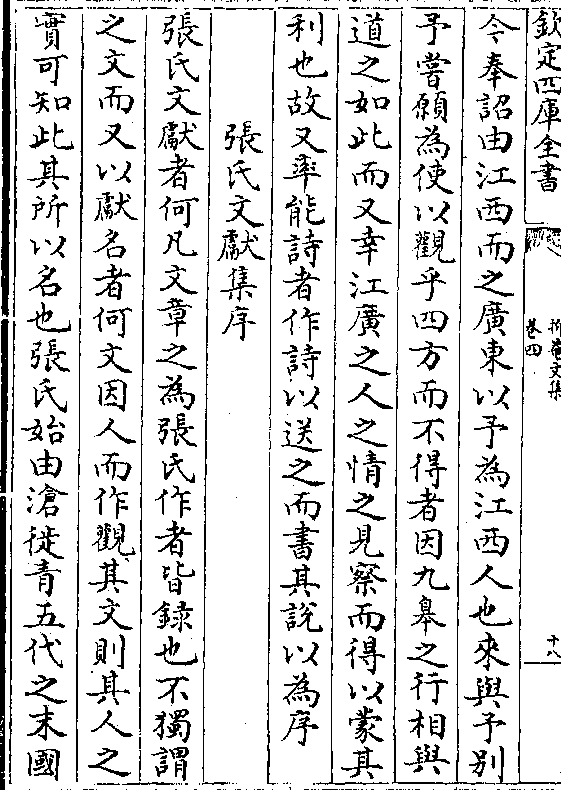 欽定四庫全書
抑菴文集
卷四
十八
今奉詔由江西而之廣東以予為江西人也來與予別
予嘗願為使以觀乎四方而不得者因九臯之行相與
道之如此而又幸江廣之人之情之見察而得以蒙其
利也故又率能詩者作詩以送之而書其說以為序
張氏文獻集序
張氏文獻者何凡文章之為張氏作者皆錄也不獨謂
之文而又以獻名者何文因人而作觀其文則其人之
實可知此其所以名也張氏始由滄徙青五代之末國